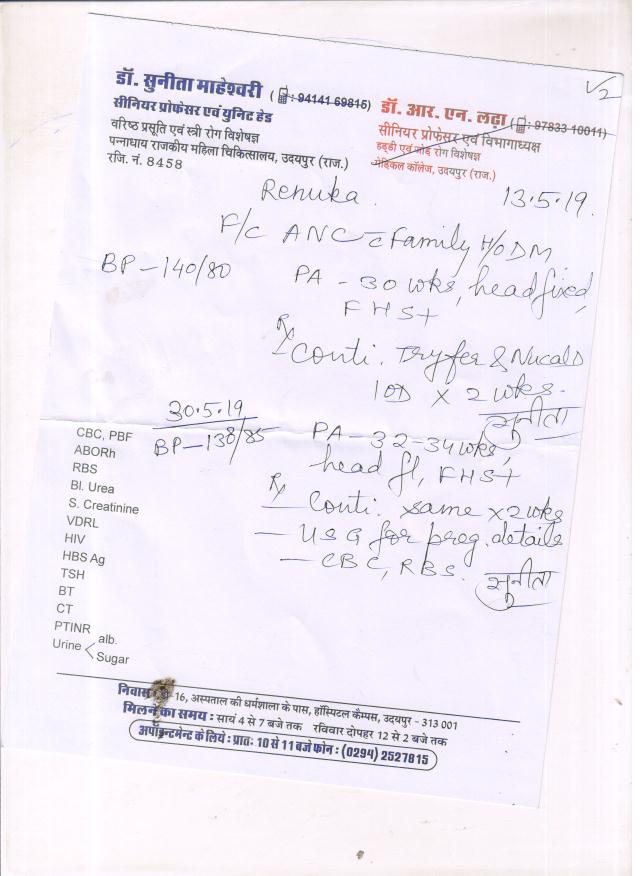 √2
डॉ. सुनीता माहेश्वरी ( : 94141 69815)
सीनियर प्रोफेसर एवं युनिट हेड
वरिष्ठ प्रसूति एवं स्त्री रोग विशेषज्ञ
पन्नाधाय राजकीय महिला चिकित्सालय, उदयपुर (राज.)
रजि. नं. 8458
डॉ. आर. एन. लढ़ा ( : 97833 10011)
सीनियर प्रोफेसर एवं विभागाध्यक्ष
हड्डी एवं जोड़ रोग विशेषज्ञ
मेडिकल कॉलेज, उदयपुर (राज.)
Renuka.
13.5.19.
F/c ANC c̄ Family H/O DM
BP - 140/80
PA - 30 wks, head fixed,
FHS+
Rx
- Conti. Tryfer & Nucal D
1OD x 2 wks.
सुनीता
30.5.19
BP - 138/85
PA - 32-34 wks,
head fl, FHS+
Rx
- Conti. same x 2 wks
- USG for preg. details
- CBC, RBS.
सुनीता
CBC, PBF
ABORh
RBS
Bl. Urea
S. Creatinine
VDRL
HIV
HBS Ag
TSH
BT
CT
PTINR
Urine < alb.
Sugar
निवास : -16, अस्पताल की धर्मशाला के पास, हॉस्पिटल कैम्पस, उदयपुर - 313 001
मिलने का समय : सायं 4 से 7 बजे तक रविवार दोपहर 12 से 2 बजे तक
अपॉइन्टमेन्ट के लिये : प्रातः 10 से 11 बजे फोन : (0294) 2527815